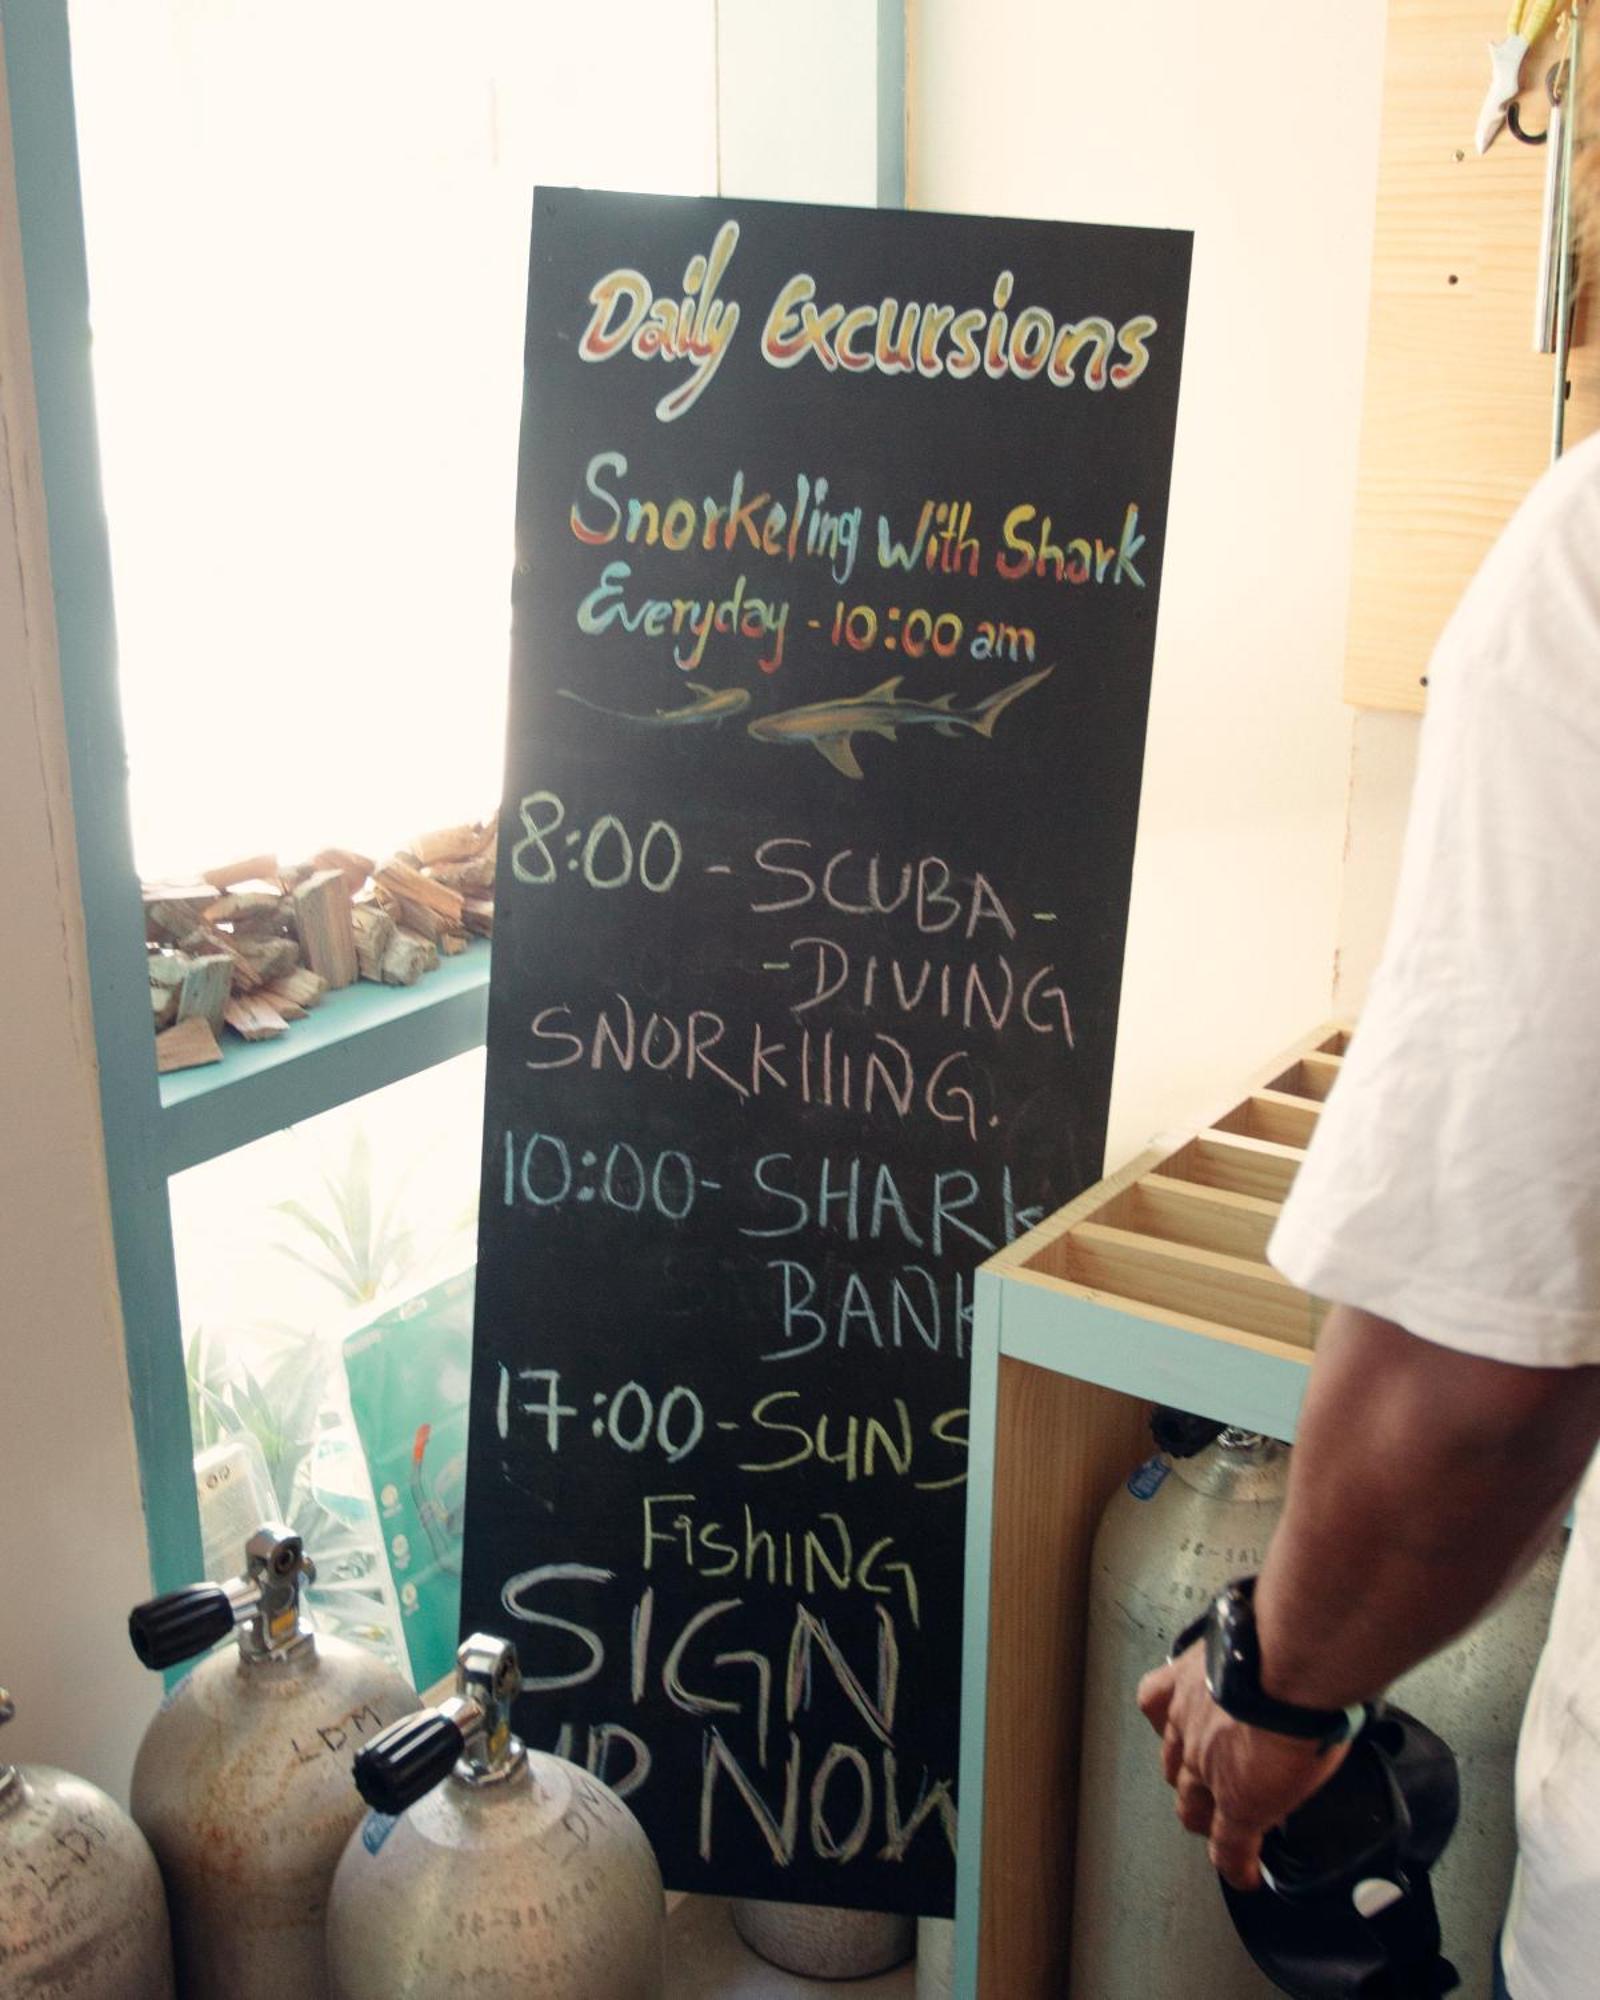 Daily Excursions
Snorkeling with Shark
Everyday - 10:00 am
8:00 - SCUBA -
- DIVING
SNORKlliNG.
10:00 - SHARK
BANK
17:00 - SUNS
FishiNG
SIGN
UP NOW
LDM